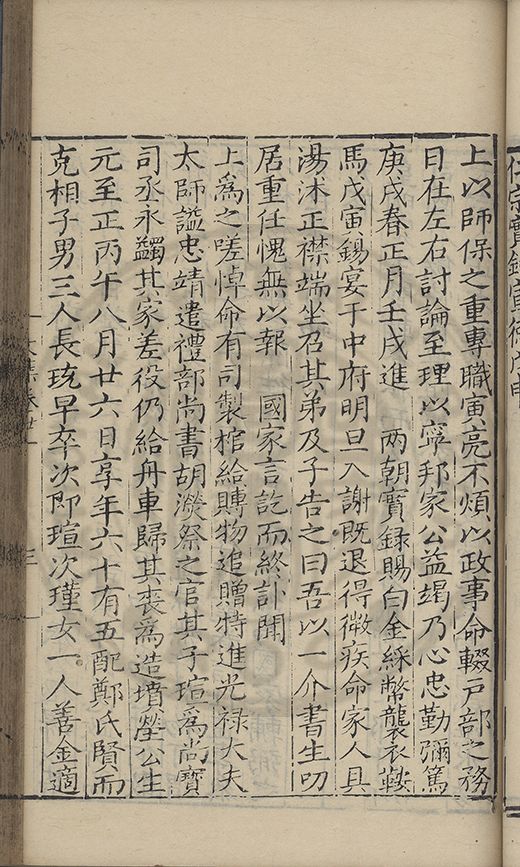 上以師保之重專職寅亮不煩以政事命輟戸部之務
日在左右討論至理以寧邦家公益竭乃心忠勤彌篤
庚戌春正月壬戌進　兩朝實錄賜白金綵幣襲衣鞍
馬戊寅錫宴于中府明旦入謝既退得微疾命家人具
湯沐正襟端坐召其弟及子告之曰吾以一介書生叨
居重任愧無以報　國家言訖而終訃聞
上為之嗟悼命有司製棺給賻物追贈特進光禄大夫
太師謚忠靖遣禮部尚書胡濙祭之官其子瑄為尚寶
司丞永蠲其家差役仍給舟車歸其喪為造墳塋公生
元至正丙午八月廿六日享年六十有五配鄭氏賢而
克相子男三人長珫早卒次即瑄次瑾女一人善金適